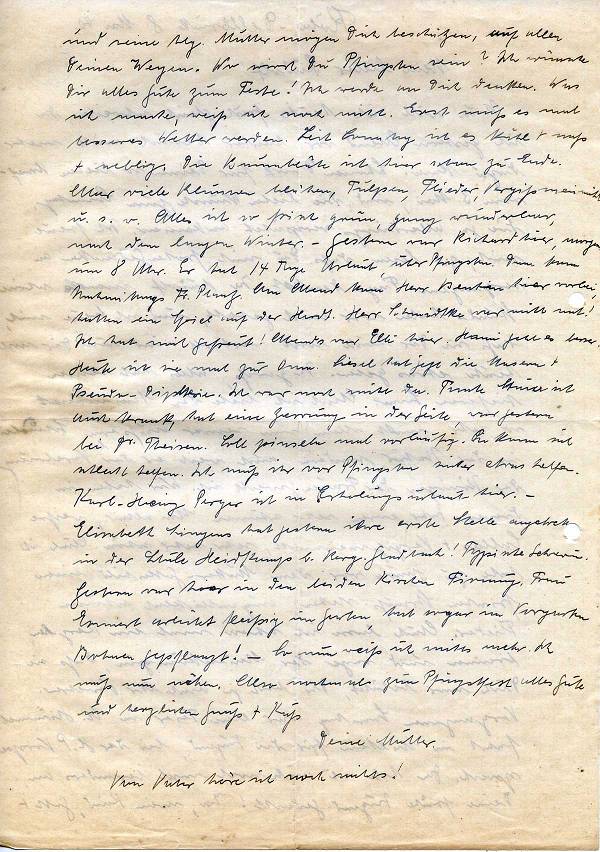 und seine hlg. Mutter mögen Dich beschützen, auf allen
Deinen Wegen. Wo wirst Du Pfingsten sein? Ich wünsche
Dir alles Gute zum Feste! Ich werde an Dich denken. Was
ich mache, weiß ich noch nicht. Erst muß es mal
besseres Wetter werden. Seit Sonntag ist es kühl + naß
+ neblig. Die Baumblüte ist hier schon zu Ende.
Aber viele Blumen blühen, Tulpen, Flieder, Vergißmeinnicht
u. s. w. Alles ist so frisch grün, ganz wunderbar,
nach dem langen Winter. – Gestern war Richard hier, morgens
um 8 Uhr. Er hat 14 Tage Urlaub, über Pfingsten. Dann kam
Fr. Am Abend kam Herr hier vorbei,
hatten ein Spiel auf der Herr Schmidtke war nicht mit!
Ich hab mich gefreut! Abends war Elli hier. Hanni geht es besser.
Heute ist sie mal zur Liesel hat jetzt die Masern +
Pseudo-Diphterie. Ich war noch nicht da. Tante ist
auch krank, hat eine Zerrung in der Seite, war gestern
bei Dr. Theisen. Soll pinseln mal vorläufig. Sie kann sich
schlecht helfen. Ich muß ihr vor Pfingsten sicher etwas helfen.
Karl-Heinz Perger ist in Erholungsurlaub hier. –
Elisabeth hat gestern ihre erste Stelle angetreten
in der Schule b. Berg. Gladbach!
Gestern war hier in den beiden Kirchen Firmung. Frau
arbeitet fleißig im Garten, hat sogar im Vorgarten
Bohnen gepflanzt! – So nun weiß ich nichts mehr. Ich
muß nun nähen. Also nochmals zum Pfingstfest alles Gute
und herzlichen Gruß + Kuß
Deine Mutter
Von Vater höre ich noch nichts!